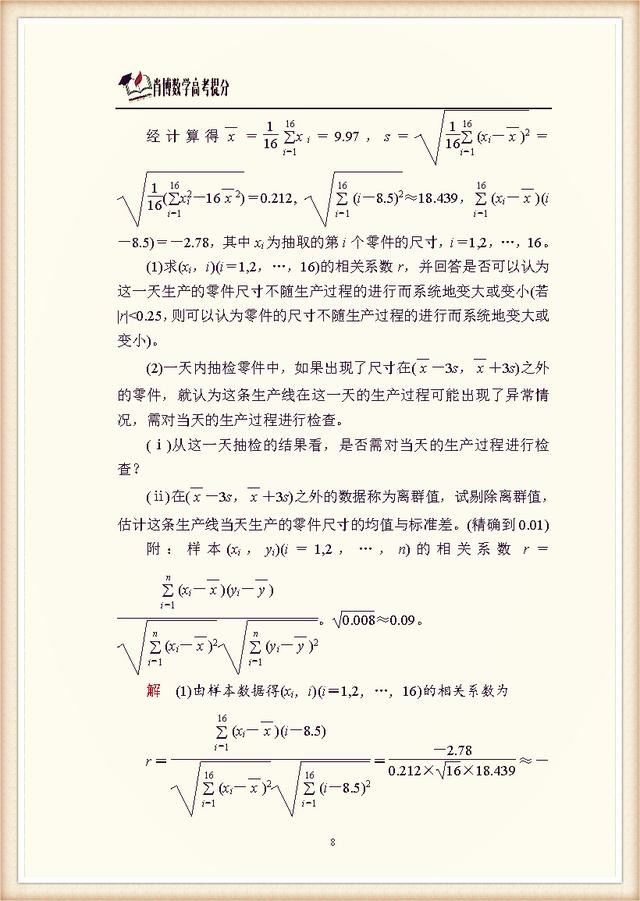 肖博数学高考提分
经计算得 x̄ = 1/16 ∑_{i=1}^{16} x_i = 9.97，s = √(1/16 ∑_{i=1}^{16} (x_i－x̄)²) =
√(1/16 (∑_{i=1}^{16} x_i²－16x̄²)) = 0.212, √(∑_{i=1}^{16} (i－8.5)²) ≈ 18.439，∑_{i=1}^{16} (x_i－x̄)(i
－8.5)＝－2.78，其中 x_i 为抽取的第 i 个零件的尺寸，i＝1,2，…，16。
(1)求(x_i，i)(i＝1,2，…，16)的相关系数 r，并回答是否可以认为
这一天生产的零件尺寸不随生产过程的进行而系统地变大或变小(若
|r|<0.25，则可以认为零件的尺寸不随生产过程的进行而系统地变大或
变小)。
(2)一天内抽检零件中，如果出现了尺寸在(x̄－3s，x̄＋3s)之外
的零件，就认为这条生产线在这一天的生产过程可能出现了异常情
况，需对当天的生产过程进行检查。
(ⅰ)从这一天抽检的结果看，是否需对当天的生产过程进行检
查？
(ⅱ)在(x̄－3s，x̄＋3s)之外的数据称为离群值，试剔除离群值，
估计这条生产线当天生产的零件尺寸的均值与标准差。(精确到 0.01)
附：样本(x_i，y_i)(i＝1,2，…，n)的相关系数 r＝
∑_{i=1}^{n} (x_i－x̄)(y_i－ȳ) / (√(∑_{i=1}^{n} (x_i－x̄)²) √(∑_{i=1}^{n} (y_i－ȳ)²))。√0.008≈0.09。
解 (1)由样本数据得(x_i，i)(i＝1,2，…，16)的相关系数为
r＝ ∑_{i=1}^{16} (x_i－x̄)(i－8.5) / (√(∑_{i=1}^{16} (x_i－x̄)²) √(∑_{i=1}^{16} (i－8.5)²)) ＝ －2.78 / (0.212×√16×18.439) ≈－
8